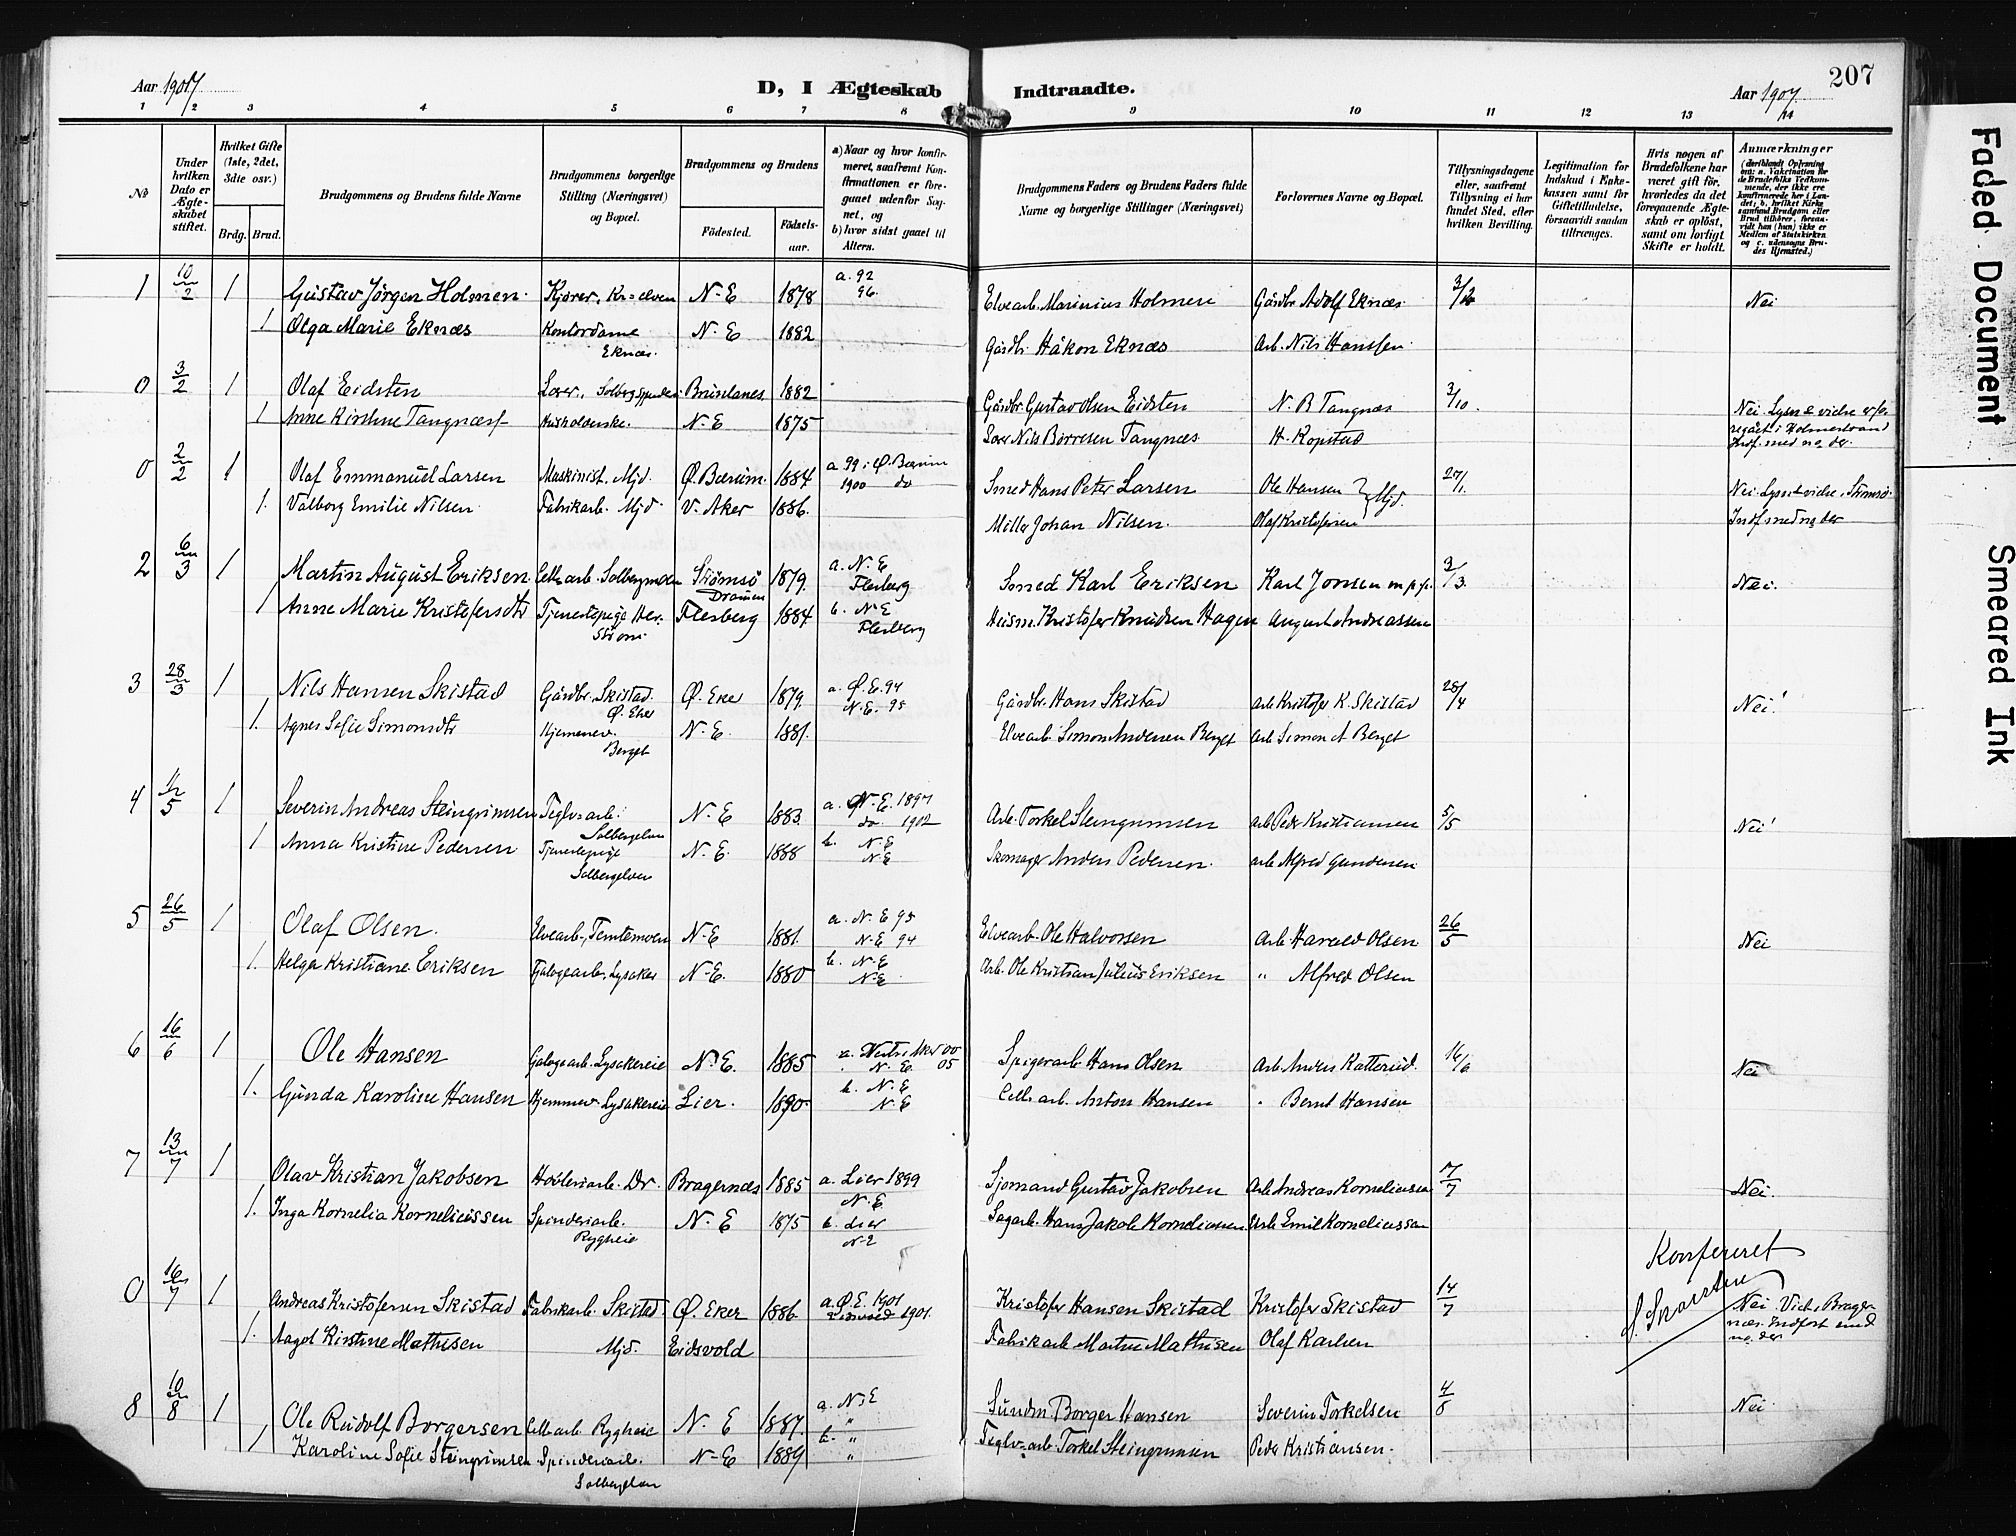 Aar 1907
D, I Ægteskab Indtraadte.
Aar 1907
207
1 2 3 4 5 6 7 8 9 10 11 12 13 14
No
Under hvilken Dato er Ægteskabet stiftet.
Hvilket Gifte (1ste, 2det, 3die osv.)
Brdg. Brud.
Brudgommens og Brudens fulde Navne
Brudgommens borgerlige Stilling (Næringsvei) og Bopæl.
Brudgommens og Brudens
Fødested. Fødselsaar.
a) Naar og hvor konfirmeret, saafremt Konfirmationen er foregaaet udenfor Sognet, og
b) hvor sidst gaaet til Alters.
Brudgommens Faders og Brudens Faders fulde Navne og borgerlige Stillinger (Næringsvei)
Forlovernes Navne og Bopæl.
Tillysningsdagene eller, saafremt Tillysning ei har fundet Sted, efter hvilken Bevilling.
Legitimation for Indskud i Enkekassen samt for Giftetilladelse, forsaavidt saadan tiltrænges.
Hvis nogen af Brudefolkene har været gift før, hvorledes da det foregaaende Ægteskab er opløst, samt om lovligt Skifte er holdt.
Anmærkninger
1 10/2 1 Gustav Jørgen Holmen. Kjører, Kr=elven N-E 1878 a. 92 96. Elvearb. Marinius Holmen Gårdbr. Adolf Eknæs Nei
1 Olga Marie Eknæs Kontordame Eknæs. N-E 1882 Gårdbr. Håkon Eknæs Arb. Nils Hanssen.
0 3/2 1 Olaf Eidsten Brunlanes 1882 Gårdbr. Gustav Olsen Eidsten N. B Tangnæs 3/10.
1 Anne Kirstine Tangnæs Husholderske. N-E 1875 Nils Børresen Tangnæs H. Kopstad
0 2/2 1 Olaf Emmanuel Larsen Maskinist, Mjd. Ø. Bærum. 1884 a 99 i Ø. Bærum 1900 do Smed Hans Peter Larsen Ole Hansen } Mjd. 27/1.
1. Valborg Emilie Nilsen. Fabrikarb. Mjd. V. Aker 1886. Møller Johan Nilsen. Olaf Kristofersen Indf. med no der
2 6/3 1 Martin August Eriksen. Cell. arb. Solbergmoen Strømsø Drammen 1879. a. N. E Flesberg Smed Karl Eriksen Karl Jonsen 3/3. Nei.
1 Anne Marie Kristofersdtr Tjenestepige Herstrøm Flesberg 1884 b. N E Flesberg Husm. Kristofer Knudsen Hagen August Andreassen
3 28/3 1 Nils Hansen Skistad Gårdbr. Skistad. Ø. Eker Ø. Eker 1879. a. Ø. E. 94 N. E. 95 Gårdbr. Hans Skistad Arb Kristofer K. Skistad 28/4 Nei!
1. Agnes Sofie Simonsdtr Hjemmev. Berget N-E. 1881. Elvearb. Simon Andersen Berget Arb Simon A Berget
4 5 1 Severin Andreas Steingrimsen Teglv=arb. Solbergelven N-E 1883. a. N. E. 1897 do. 1902 Arb. Torkel Steingrimsen Arb Peder Kristiansen 5/5 Nei!
1 Anna Kristine Pedersen Tjenestepige Solbergelven N. E. 1888 b. N. E N E Skomager Anders Pedersen. arb Alfred Gundersen
5 26/5 1 Olaf Olsen. Elvearb., Temtemoen N-E 1881. a. N. E 95 N-E 94 Elvearb. Ole Halvorsen Arb Harald Olsen 26/5 Nei
1. Helga Kristiane Eriksen Galogearb. Lysaker N-E. 1880 b. N-E N-E Arb. Ole Kristian Julius Eriksen " Alfred Olsen
6 16/6 1 Ole Hansen Galogearb. Lysakereie N. E. 1885 a. Vestre Aker 00 N. E. 05 Spigerarb Hans Olsen Arb. Anders Katterud. 16/6 Nei
1. Gunda Karoline Hansen Hjemmev. Lysakereie Lier. 1890. b. N. E N. E Cell. arb. Anton Hansen " Bernt Hansen
7 13/7 1 Olav Kristian Jakobsen Høvleriarb. Dr. Bragernæs 1885 a. Lier 1899 N. E. Sjømand Gustav Jakobsen Arb. Andreas Korneliussen 7/7 Nei.
1. Inga Kornelia Korneliussen Spinderiarb. Rygheie N. E 1875 b. Lier N-E Sagarb. Hans Jakob Korneliussen Arb Emil Korneliussen
Konfereret
0 16/7 1 Andreas Kristofersen Skistad Fabrikarb. Skistad Ø. Eker 1886. a. Ø. E. 1901 1901. Kristofer Hansen Skistad Kristofer Skistad 14/7 Nei. Vied Bragernæs. Indført med no der
1. Aagot Kirstine Mathisen Mjd. Eidsvold Fabrikarb Martin Mathisen Olaf Karlsen
8 10/8 1 Ole Rudolf Borgersen Cell. arb. Rygheie N. E 1887. a. N. E " Borger Hansen Severin Torkelsen 4/8 Nei.
1 Karoline Sofie Steingrimsen Spinderiarb. Solbergelven N-E 1889 b. " " Teglv=arb Torkel Steingrimsen Peder Kristiansen.
Faded Document
Smeared Ink